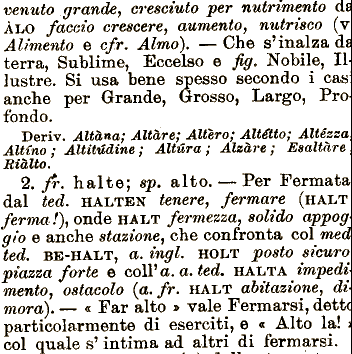 venuto grande, cresciuto per nutrimento da
ÀLO faccio crescere, aumento, nutrisco (v.
Alimento e cfr. Almo). — Che s'inalza da
terra, Sublime, Eccelso e fig. Nobile, Il-
lustre. Si usa bene spesso secondo i casi
anche per Grande, Grosso, Largo, Pro-
fondo.
Deriv. Altàna; Altàre; Altèro; Altétto; Altézza;
Altíno; Altitúdine; Altúra; Alzàre; Esaltàre
Riàlto.
2. fr. halte; sp. alto. — Per Fermata
dal ted. HALTEN tenere, fermare (HALT
ferma!), onde HALT fermezza, solido appog-
gio e anche stazione, che confronta col med.
ted. BE-HALT, a. ingl. HOLT posto sicuro
piazza forte e coll'a. a. ted. HALTA impedi-
mento, ostacolo (a. fr. HALT abitazione, di-
mora). — « Far alto » vale Fermarsi, detto
particolarmente di eserciti, e « Alto la! »
col quale s'intima ad altri di fermarsi.